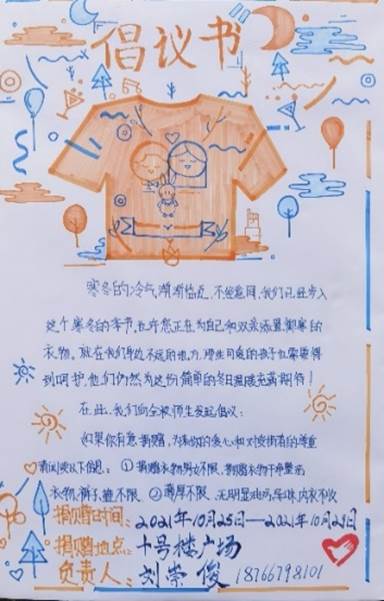 倡议书
寒冬的冷气渐渐临近，不经意间，我们已步入
这个寒冬的季节，也许您正在为自己和双亲添置御寒的
衣物。就在我们身边不远的地方，那些可爱的孩子也需要得
到呵护，他们仍然为这份简单的冬日温暖充满期待！
在此，我们向全校师生发起倡议：
如果你有意捐赠，为你的爱心和对受捐者的尊重
请阅读以下信息：①捐赠衣物男女不限，捐赠衣物干净整洁
衣物，裤子，鞋不限 ②薄厚不限，无明显破污异味内衣不收
捐赠时间：2021年10月25日—2021年10月29日
捐赠地点：十号楼广场
负责人：刘崇俊 18766798101